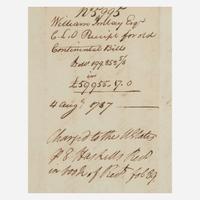 No 5995
William Imlay Esqr
C. L. O Receipt for old
Continental Bills
Dolls 199.852 5/8
in
£59955..17.0
4 augt 1787
Charged to the State
P E Haskells Rect
in book of Rects fol 89